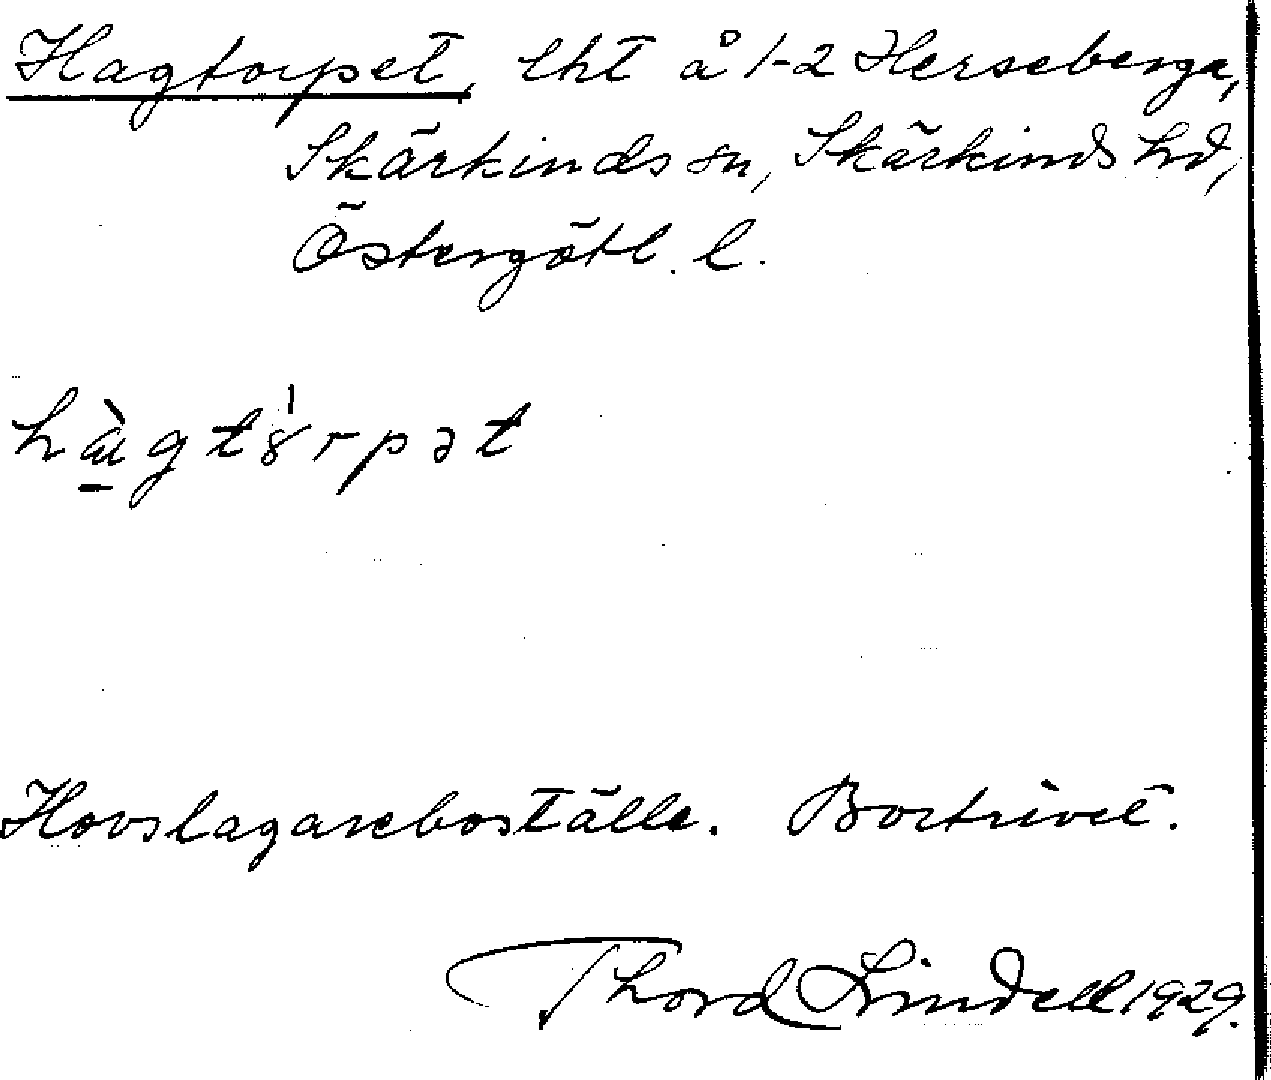 Hagtorpet, lht å 1-2 Herseberga,
Skärkinds sn, Skärkinds hd,
Östergötl. l.
Hovslagareboställe. Bortrivet.
Thord Lindell 1929.